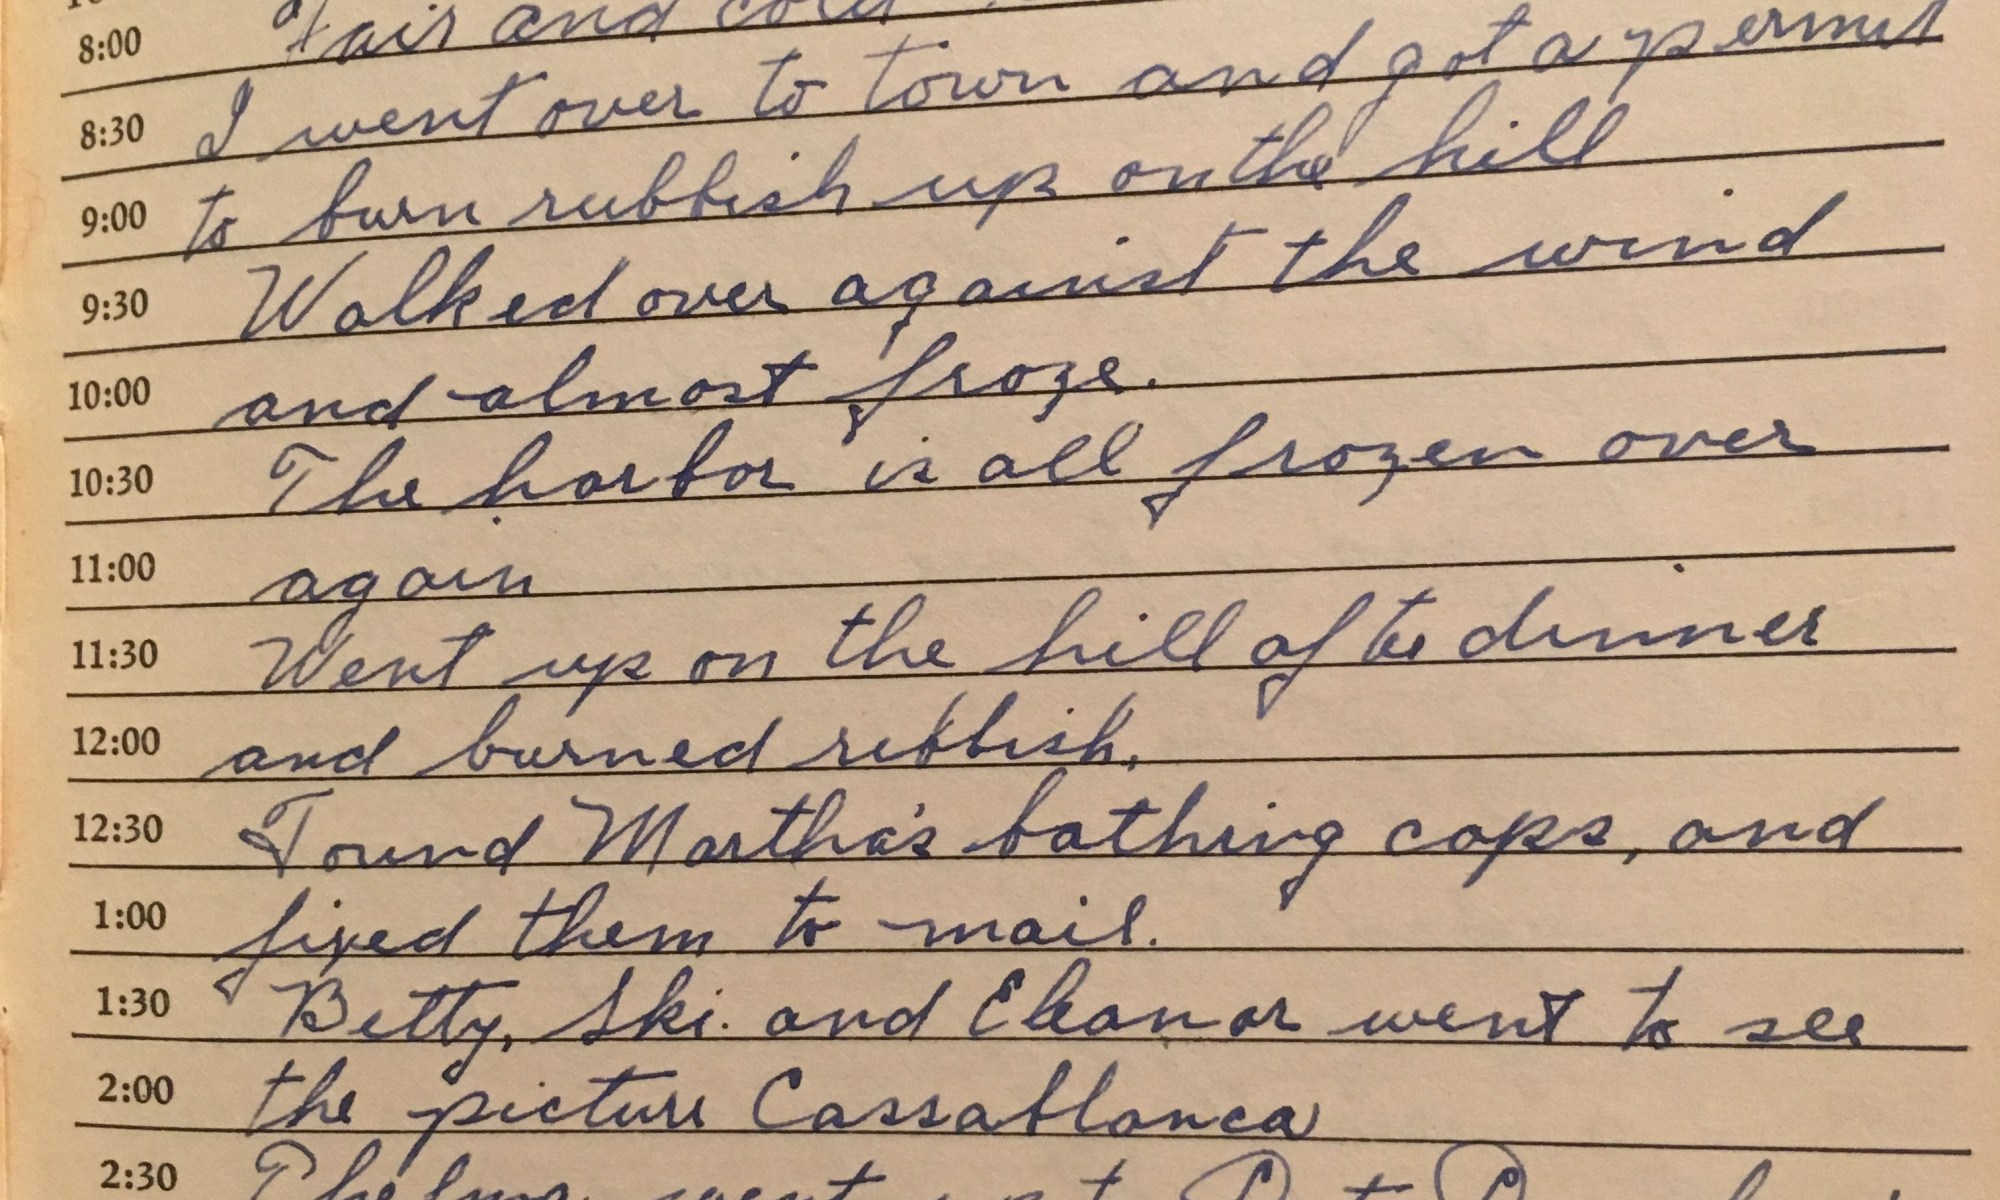 8:00 Fair and cold
8:30 I went over to town and got a permit
9:00 to burn rubbish up on the hill
9:30 Walked over against the wind
10:00 and almost froze.
10:30 The harbor is all frozen over
11:00 again
11:30 Went up on the hill after dinner
12:00 and burned ribbish.
12:30 Found Martha's bathing caps, and
1:00 fixed them to mail.
1:30 Betty, Ski. and Eleanor went to see
2:00 the picture Cassablanca
2:30 Thelma went